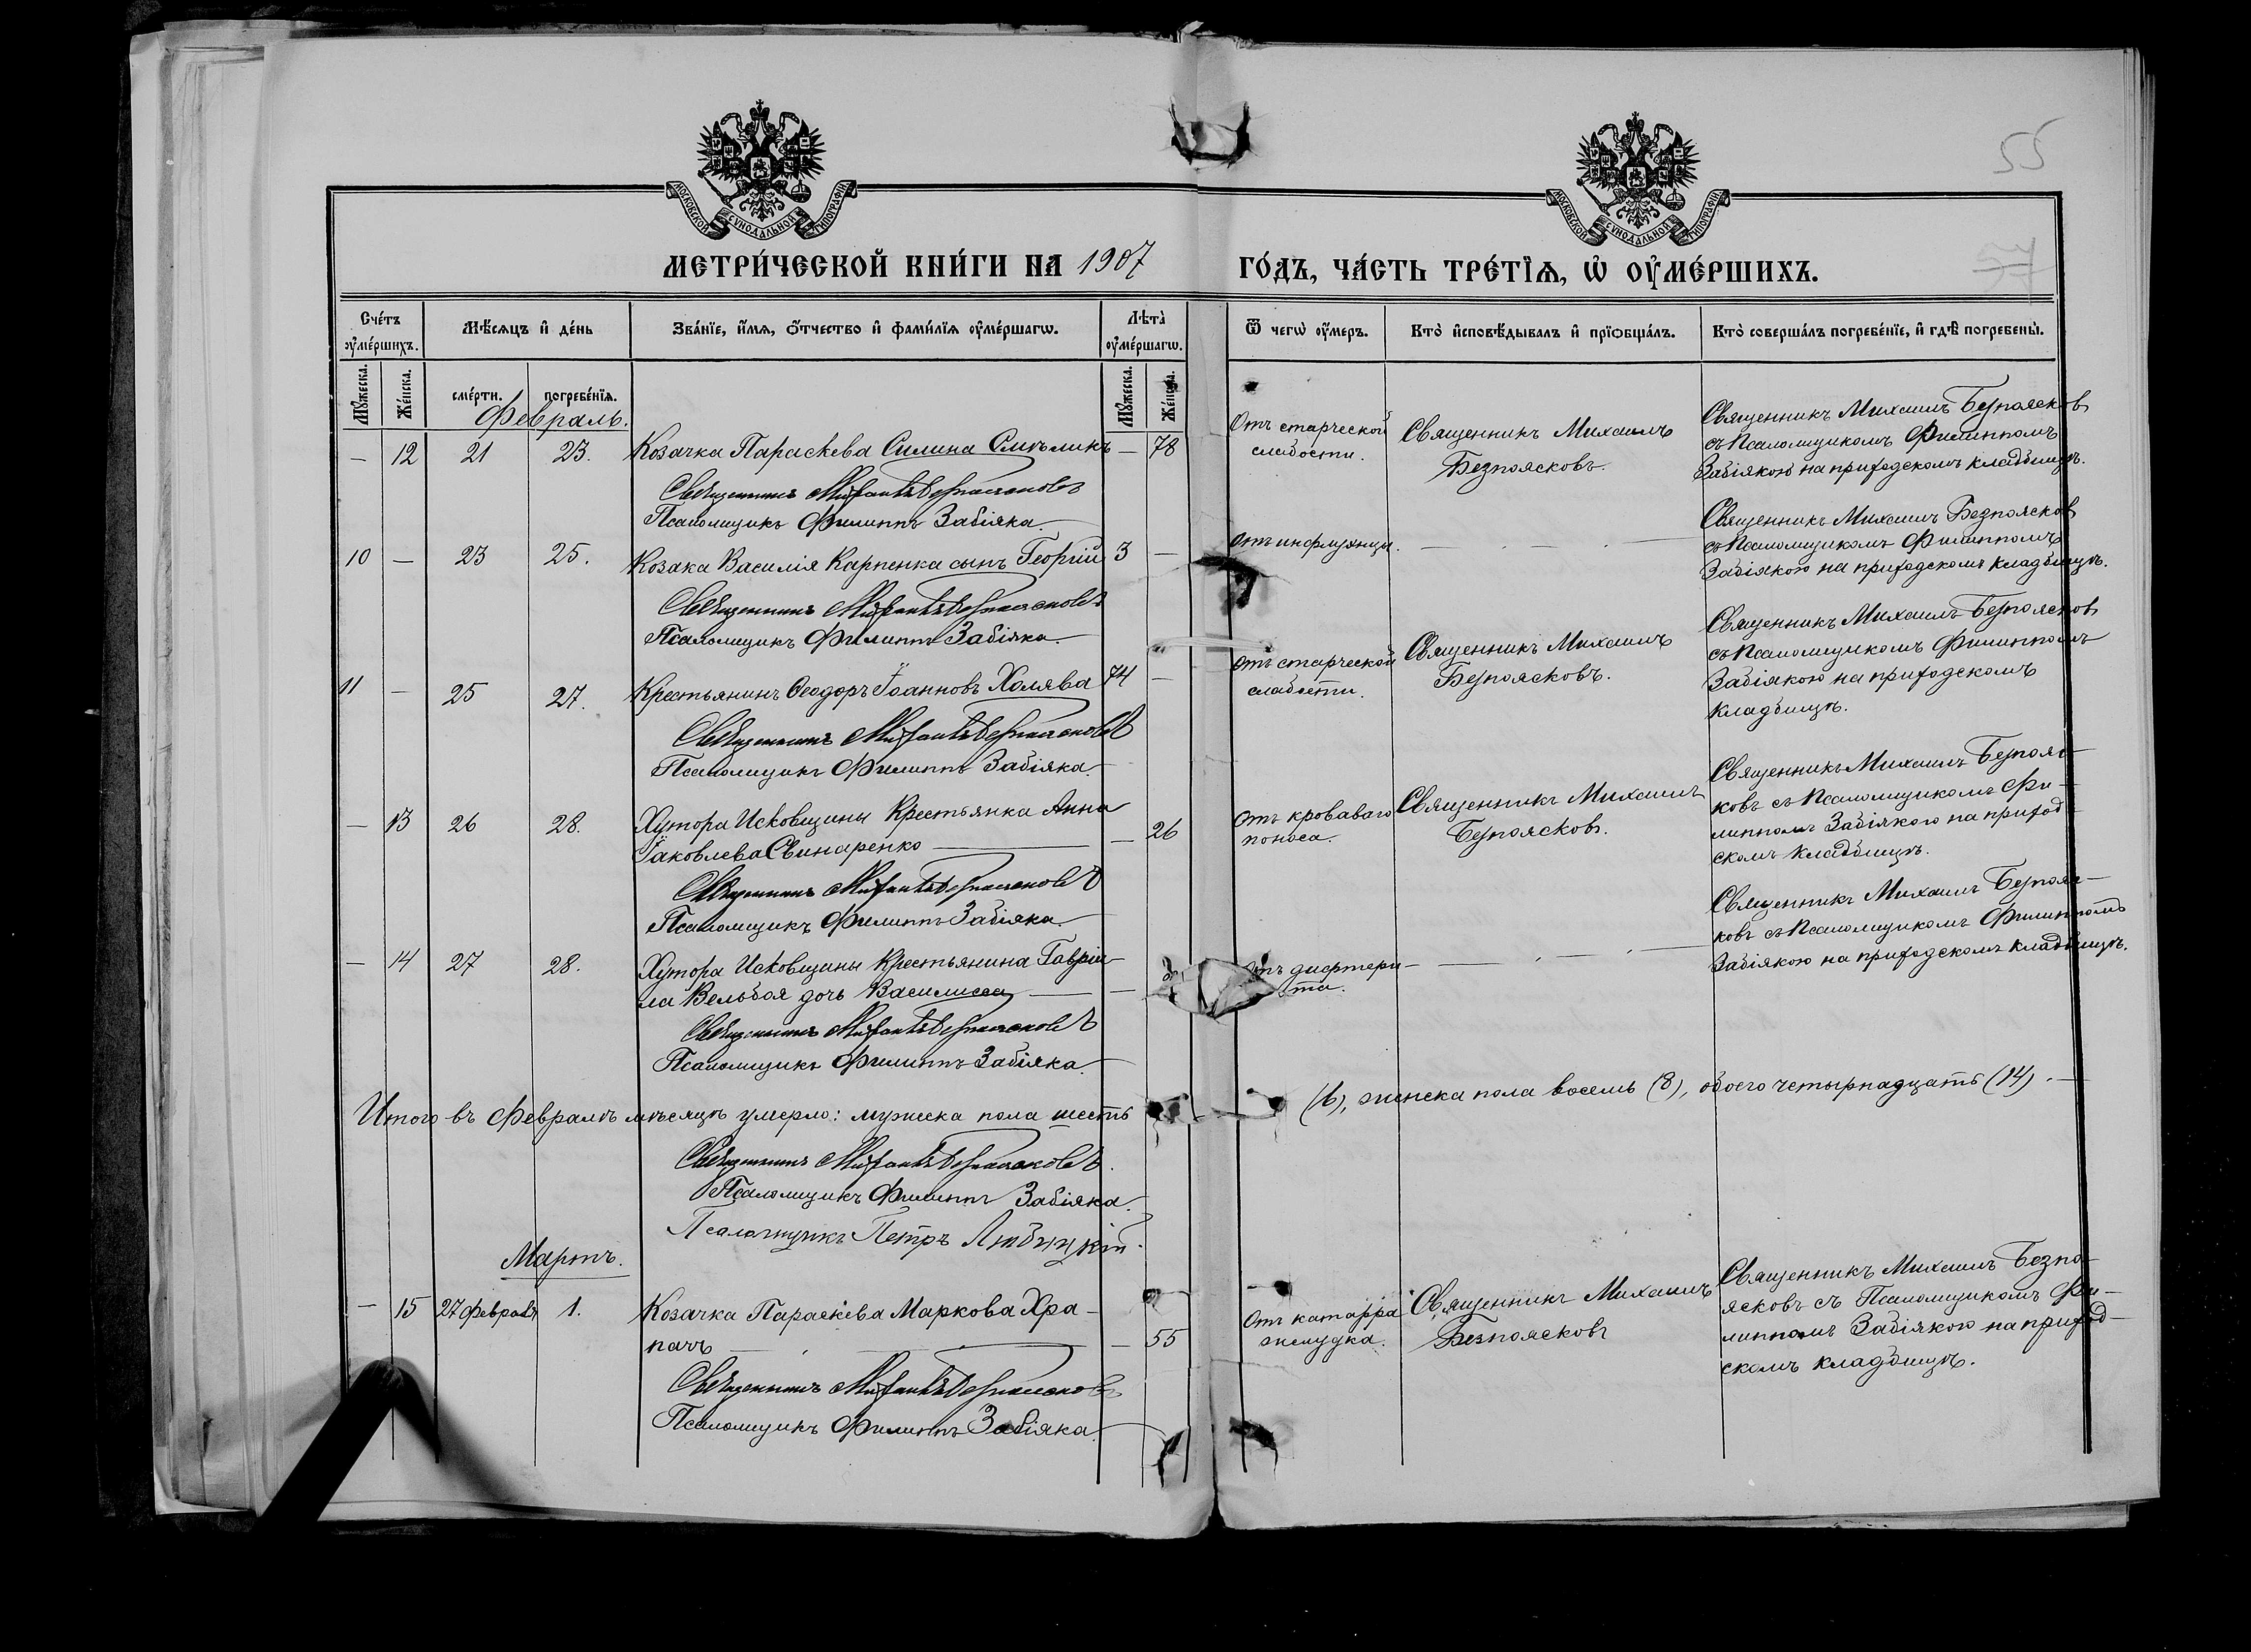 55
МОСКОВСКОЙ СѴНОДАЛЬНОЙ ТИПОГРАФІИ
МОСКОВСКОЙ СѴНОДАЛЬНОЙ ТИПОГРАФІИ
МЕТРИ́ЧЕСКОЙ КНИ́ГИ НА 1907
ГО́ДЪ, ЧА́СТЬ ТРЕ́ТЇѦ, Ѡ҆ ОУ҆МЕ́РШИХЪ.
Сче́тъ оу҆ме́ршихъ.
Мѣ́сяцъ и҆ де́нь
Зва́нїе, и҆́мя, ѻ҆́тчество и҆ фами́лїя оу҆ме́ршагѡ.
Лѣ́та оу҆ме́ршагѡ.
Ѿ чегѡ̀ оу҆́меръ.
Кто̀ и҆сповѣ́дывалъ и҆ прїѡбща́лъ.
Кто̀ соверша́лъ погребе́нїе, и҆ гдѣ̀ погребены̀.
Мꙋ́жеска.
Же́нска.
сме́рти.
погребе́нїя.
Мꙋ́жеска.
Же́нска.
Февраль.
— 12 21 23. Козачка Параскева Силина Смѣликъ — 78
Священникъ Михаилъ Безпоясковъ
Псаломщикъ Филиппъ Забіяка.
Отъ старческой
слабости.
Священникъ Михаилъ
Безпоясковъ.
Священникъ Михаилъ Безпоясковъ
съ Псаломщикомъ Филиппомъ
Забіякою на приходскомъ кладбищѣ.
10 — 23 25. Козака Василія Карпенка сынъ Георгій 3 —
Священникъ Михаилъ Безпоясковъ
Псаломщикъ Филиппъ Забіяка.
Отъ инфлуэнци.
Священникъ Михаилъ Безпоясков
съ Псаломщикомъ Филиппомъ
Забіякою на приходскомъ кладбищѣ.
11 — 25 27. Крестьянинъ Ѳеодоръ Іоанновъ Холява 74 —
Священникъ Михаилъ Безпоясковъ
Псаломщикъ Филиппъ Забіяка.
Отъ старческой
слабости.
Священникъ Михаилъ
Безпоясковъ.
Священникъ Михаилъ Безпоясков
съ Псаломщикомъ Филиппомъ
Забіякою на приходскомъ
кладбищѣ.
— 13 26 28. Хутора Исковщины Крестьянка Анна
Іаковлева Свинаренко — — 26
Священникъ Михаилъ Безпоясковъ
Псаломщикъ Филиппъ Забіяка.
Отъ кроваваго
поноса.
Священникъ Михаилъ
Безпоясковъ.
Священникъ Михаилъ Безпояс-
ковъ съ Псаломщикомъ Фи-
липпомъ Забіякою на приход-
скомъ кладбищѣ.
— 14 27 28. Хутора Исковщины Крестьянина Гавріи-
ла Вельбоя дочь Василисса — —
Священникъ Михаилъ Безпоясковъ
Псаломщикъ Филиппъ Забіяка.
Отъ дифтери-
та.
Священникъ Михаилъ Безпояс-
ковъ съ Псаломщикомъ Филиппомъ
Забіякою на приходскомъ кладбищѣ.
Итого въ Февралѣ мѣсяцѣ умерло: мужеска пола шесть
(6), женска пола восемь (8), обоего четырнадцать (14).
Священникъ Михаилъ Безпоясковъ.
Псаломщикъ Филиппъ Забіяка.
Псаломщикъ Петръ Любицкій.
Мартъ.
— 15 27 февраля 1. Козачка Параскева Маркова Хра-
пачъ — — 55
Священникъ Михаилъ Безпоясковъ
Псаломщикъ Филиппъ Забіяка.
Отъ катарра
желудка.
Священникъ Михаилъ
Безпоясковъ
Священникъ Михаилъ Безпо-
ясковъ съ Псаломщикомъ Фи-
липпомъ Забіякою на приход-
скомъ кладбищѣ.